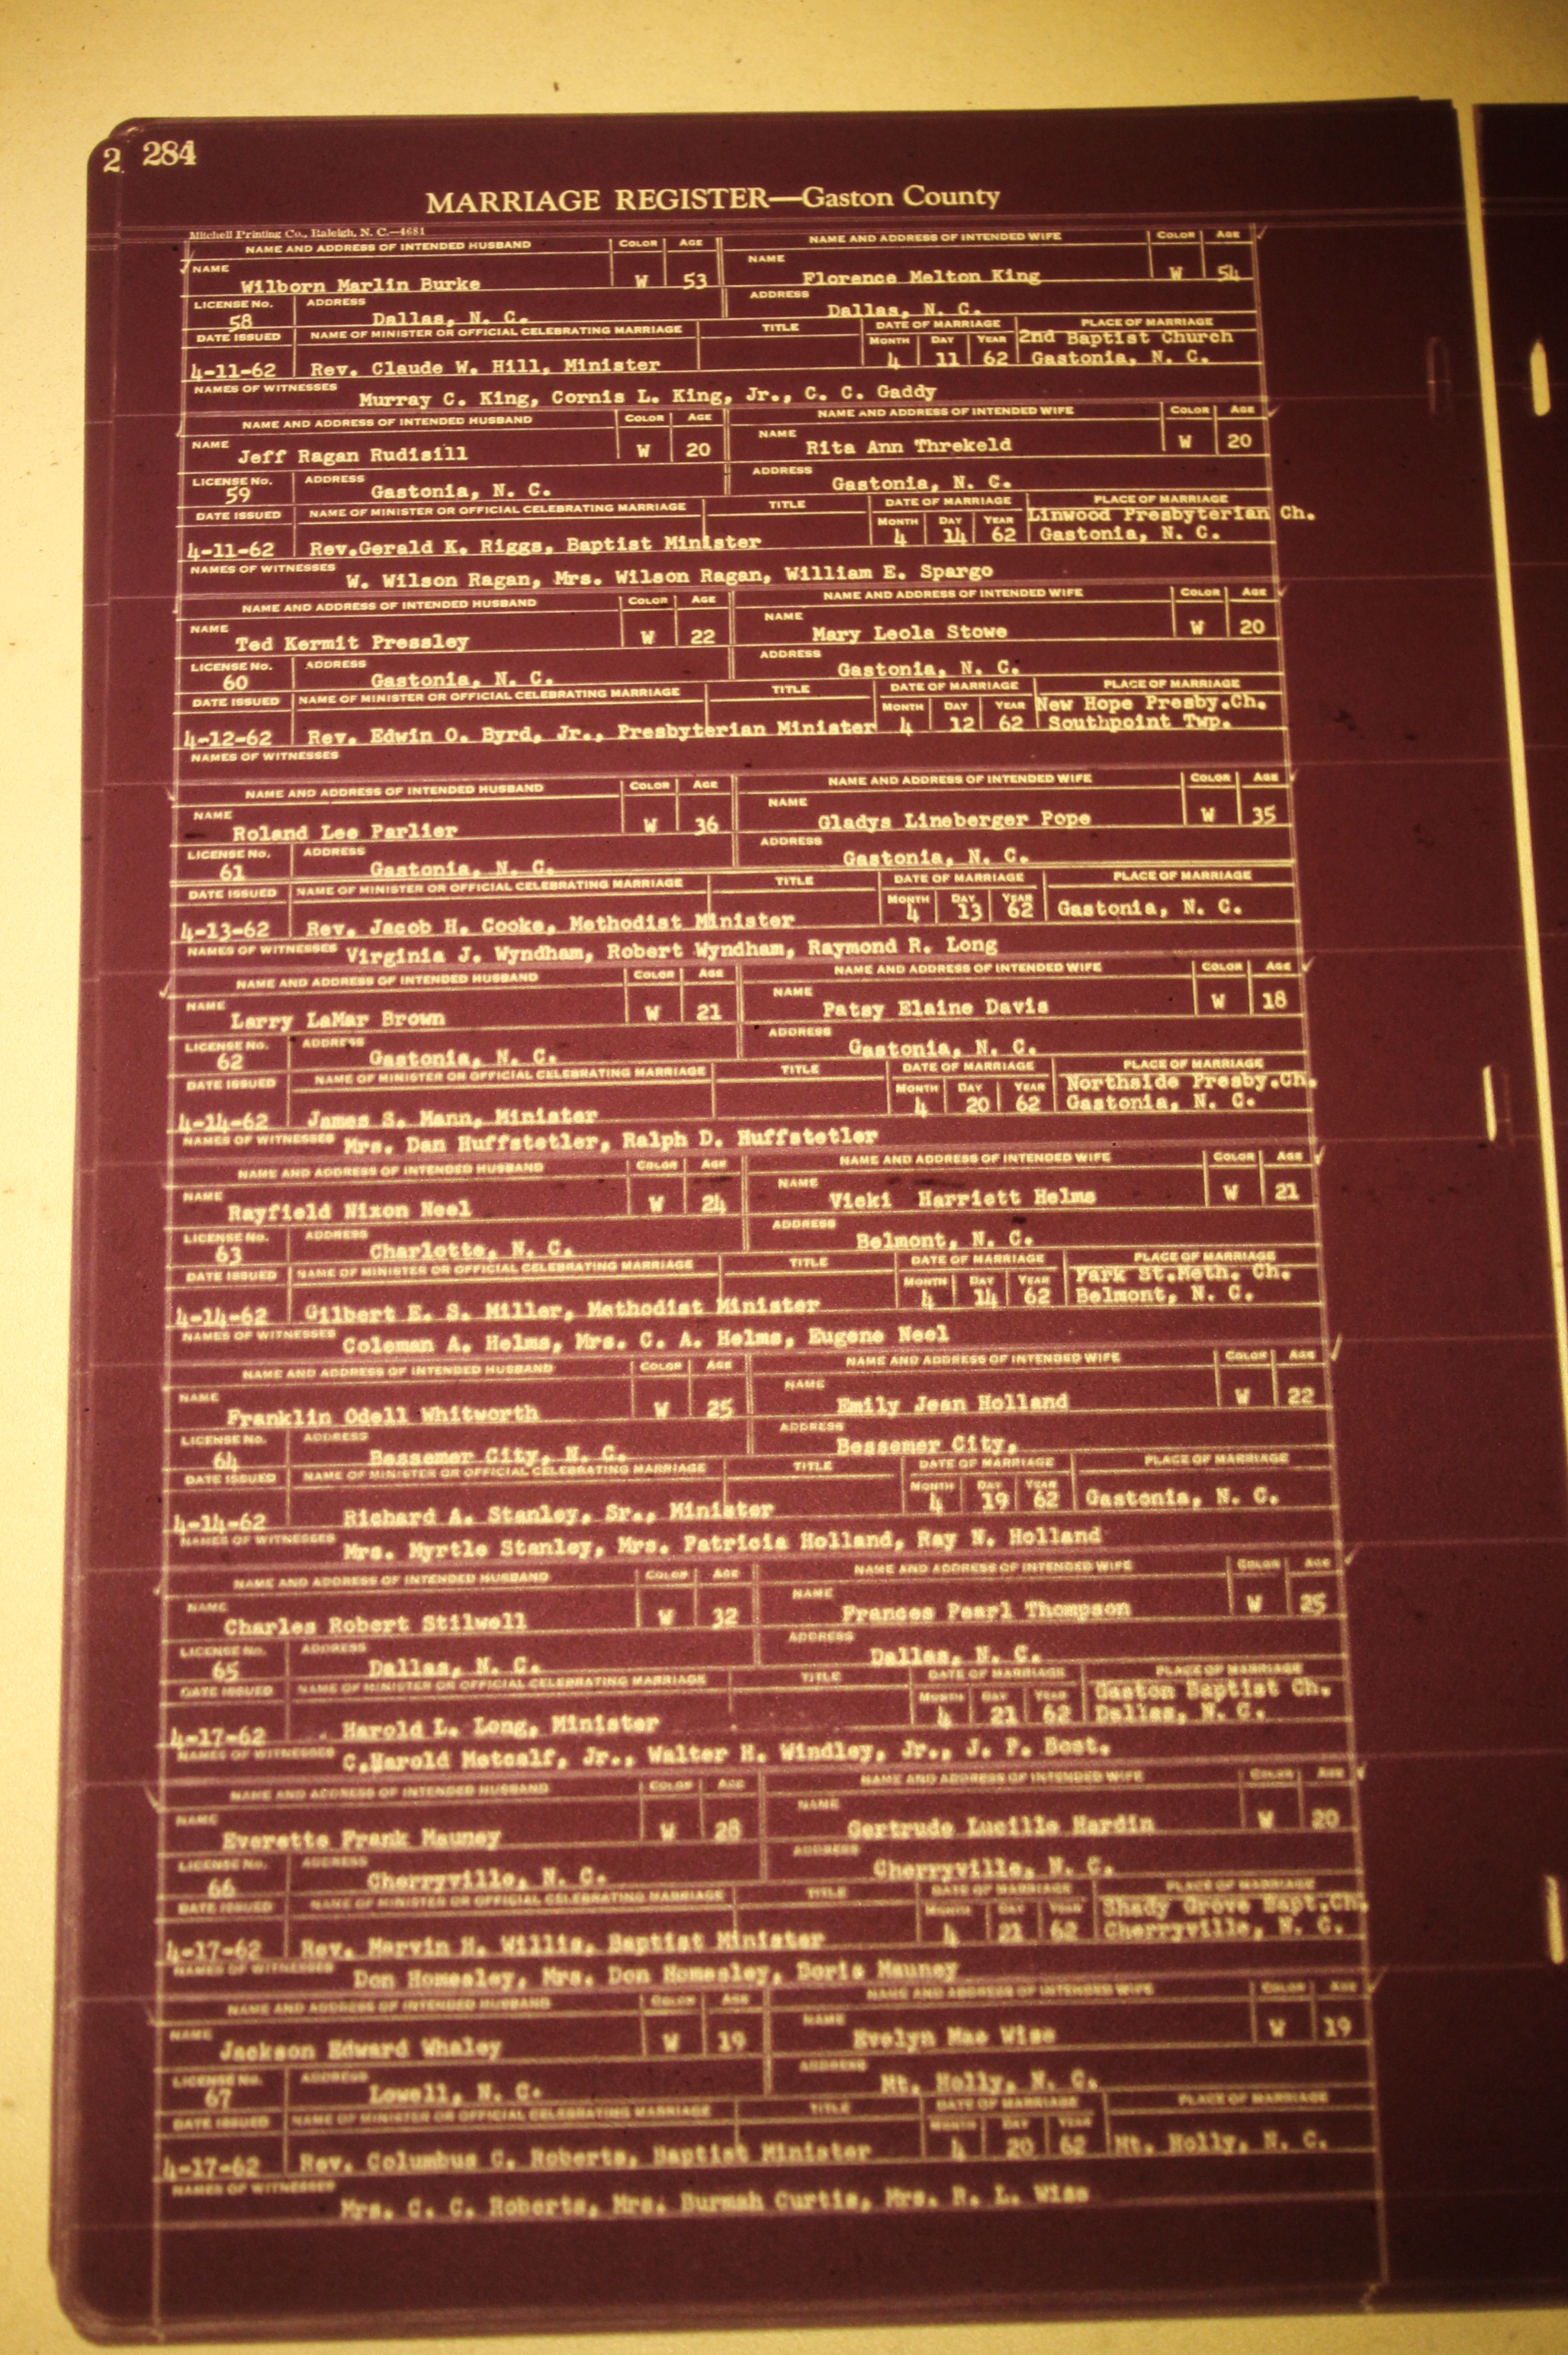 2 284
MARRIAGE REGISTER—Gaston County
Mitchell Printing Co., Raleigh, N. C.—4681
NAME AND ADDRESS OF INTENDED HUSBAND COLOR AGE NAME AND ADDRESS OF INTENDED WIFE COLOR AGE
NAME Wilborn Marlin Burke W 53 NAME Florence Melton King W 54
LICENSE No. 58 ADDRESS Dallas, N. C. ADDRESS Dallas, N. C.
DATE ISSUED NAME OF MINISTER OR OFFICIAL CELEBRATING MARRIAGE TITLE DATE OF MARRIAGE PLACE OF MARRIAGE
MONTH DAY YEAR 2nd Baptist Church
4-11-62 Rev. Claude W. Hill, Minister 4 11 62 Gastonia, N. C.
NAMES OF WITNESSES Murray C. King, Cornis L. King, Jr., C. C. Gaddy
NAME AND ADDRESS OF INTENDED HUSBAND COLOR AGE NAME AND ADDRESS OF INTENDED WIFE COLOR AGE
NAME Jeff Ragan Rudisill W 20 NAME Rita Ann Threkeld W 20
LICENSE No. 59 ADDRESS Gastonia, N. C. ADDRESS Gastonia, N. C.
DATE ISSUED NAME OF MINISTER OR OFFICIAL CELEBRATING MARRIAGE TITLE DATE OF MARRIAGE PLACE OF MARRIAGE
MONTH DAY YEAR Linwood Presbyterian Ch.
4-11-62 Rev.Gerald K. Riggs, Baptist Minister 4 14 62 Gastonia, N. C.
NAMES OF WITNESSES W. Wilson Ragan, Mrs. Wilson Ragan, William E. Spargo
NAME AND ADDRESS OF INTENDED HUSBAND COLOR AGE NAME AND ADDRESS OF INTENDED WIFE COLOR AGE
NAME Ted Kermit Pressley W 22 NAME Mary Leola Stowe W 20
LICENSE No. 60 ADDRESS Gastonia, N. C. ADDRESS Gastonia, N. C.
DATE ISSUED NAME OF MINISTER OR OFFICIAL CELEBRATING MARRIAGE TITLE DATE OF MARRIAGE PLACE OF MARRIAGE
MONTH DAY YEAR New Hope Presby.Ch.
4-12-62 Rev. Edwin O. Byrd, Jr., Presbyterian Minister 4 12 62 Southpoint Twp.
NAMES OF WITNESSES
NAME AND ADDRESS OF INTENDED HUSBAND COLOR AGE NAME AND ADDRESS OF INTENDED WIFE COLOR AGE
NAME Roland Lee Parlier W 36 NAME Gladys Lineberger Pope W 35
LICENSE No. 61 ADDRESS Gastonia, N. C. ADDRESS Gastonia, N. C.
DATE ISSUED NAME OF MINISTER OR OFFICIAL CELEBRATING MARRIAGE TITLE DATE OF MARRIAGE PLACE OF MARRIAGE
MONTH DAY YEAR
4-13-62 Rev. Jacob H. Cooke, Methodist Minister 4 13 62 Gastonia, N. C.
NAMES OF WITNESSES Virginia J. Wyndham, Robert Wyndham, Raymond R. Long
NAME AND ADDRESS OF INTENDED HUSBAND COLOR AGE NAME AND ADDRESS OF INTENDED WIFE COLOR AGE
NAME Larry LaMar Brown W 21 NAME Patsy Elaine Davis W 18
LICENSE No. 62 ADDRESS Gastonia, N. C. ADDRESS Gastonia, N. C.
DATE ISSUED NAME OF MINISTER OR OFFICIAL CELEBRATING MARRIAGE TITLE DATE OF MARRIAGE PLACE OF MARRIAGE
MONTH DAY YEAR Northside Presby.Ch.
4-14-62 James S. Mann, Minister 4 20 62 Gastonia, N. C.
NAMES OF WITNESSES Mrs. Dan Huffstetler, Ralph D. Huffstetler
NAME AND ADDRESS OF INTENDED HUSBAND COLOR AGE NAME AND ADDRESS OF INTENDED WIFE COLOR AGE
NAME Rayfield Nixon Neel W 24 NAME Vicki Harriett Helms W 21
LICENSE No. 63 ADDRESS Charlotte, N. C. ADDRESS Belmont, N. C.
DATE ISSUED NAME OF MINISTER OR OFFICIAL CELEBRATING MARRIAGE TITLE DATE OF MARRIAGE PLACE OF MARRIAGE
MONTH DAY YEAR Park St.Meth. Ch.
4-14-62 Gilbert E. S. Miller, Methodist Minister 4 14 62 Belmont, N. C.
NAMES OF WITNESSES Coleman A. Helms, Mrs. C. A. Helms, Eugene Neel
NAME AND ADDRESS OF INTENDED HUSBAND COLOR AGE NAME AND ADDRESS OF INTENDED WIFE COLOR AGE
NAME Franklin Odell Whitworth W 25 NAME Emily Jean Holland W 22
LICENSE No. 64 ADDRESS Bessemer City, N. C. ADDRESS Bessemer City,
DATE ISSUED NAME OF MINISTER OR OFFICIAL CELEBRATING MARRIAGE TITLE DATE OF MARRIAGE PLACE OF MARRIAGE
MONTH DAY YEAR
4-14-62 Richard A. Stanley, Sr., Minister 4 19 62 Gastonia, N. C.
NAMES OF WITNESSES Mrs. Myrtle Stanley, Mrs. Patricia Holland, Ray N. Holland
NAME AND ADDRESS OF INTENDED HUSBAND COLOR AGE NAME AND ADDRESS OF INTENDED WIFE COLOR AGE
NAME Charles Robert Stilwell W 32 NAME Frances Pearl Thompson W 25
LICENSE No. 65 ADDRESS Dallas, N. C. ADDRESS Dallas, N. C.
DATE ISSUED NAME OF MINISTER OR OFFICIAL CELEBRATING MARRIAGE TITLE DATE OF MARRIAGE PLACE OF MARRIAGE
MONTH DAY YEAR Gaston Baptist Ch.
4-17-62 Harold L. Long, Minister 4 21 62 Dallas, N. C.
NAMES OF WITNESSES C.Harold Metcalf, Jr., Walter H. Windley, Jr., J. P. Bost.
NAME AND ADDRESS OF INTENDED HUSBAND COLOR AGE NAME AND ADDRESS OF INTENDED WIFE COLOR AGE
NAME Everette Frank Mauney W 28 NAME Gertrude Lucille Hardin W 20
LICENSE No. 66 ADDRESS Cherryville, N. C. ADDRESS Cherryville, N. C.
DATE ISSUED NAME OF MINISTER OR OFFICIAL CELEBRATING MARRIAGE TITLE DATE OF MARRIAGE PLACE OF MARRIAGE
MONTH DAY YEAR Shady Grove Bapt.Ch.
4-17-62 Rev. Marvin H. Willis, Baptist Minister 4 21 62 Cherryville, N. C.
NAMES OF WITNESSES Don Homesley, Mrs. Don Homesley, Doris Mauney
NAME AND ADDRESS OF INTENDED HUSBAND COLOR AGE NAME AND ADDRESS OF INTENDED WIFE COLOR AGE
NAME Jackson Edward Whaley W 19 NAME Evelyn Mae Wise W 19
LICENSE No. 67 ADDRESS Lowell, N. C. ADDRESS Mt. Holly, N. C.
DATE ISSUED NAME OF MINISTER OR OFFICIAL CELEBRATING MARRIAGE TITLE DATE OF MARRIAGE PLACE OF MARRIAGE
MONTH DAY YEAR
4-17-62 Rev. Columbus C. Roberts, Baptist Minister 4 20 62 Mt. Holly, N. C.
NAMES OF WITNESSES Mrs. C. C. Roberts, Mrs. Burmah Curtis, Mrs. R. L. Wise